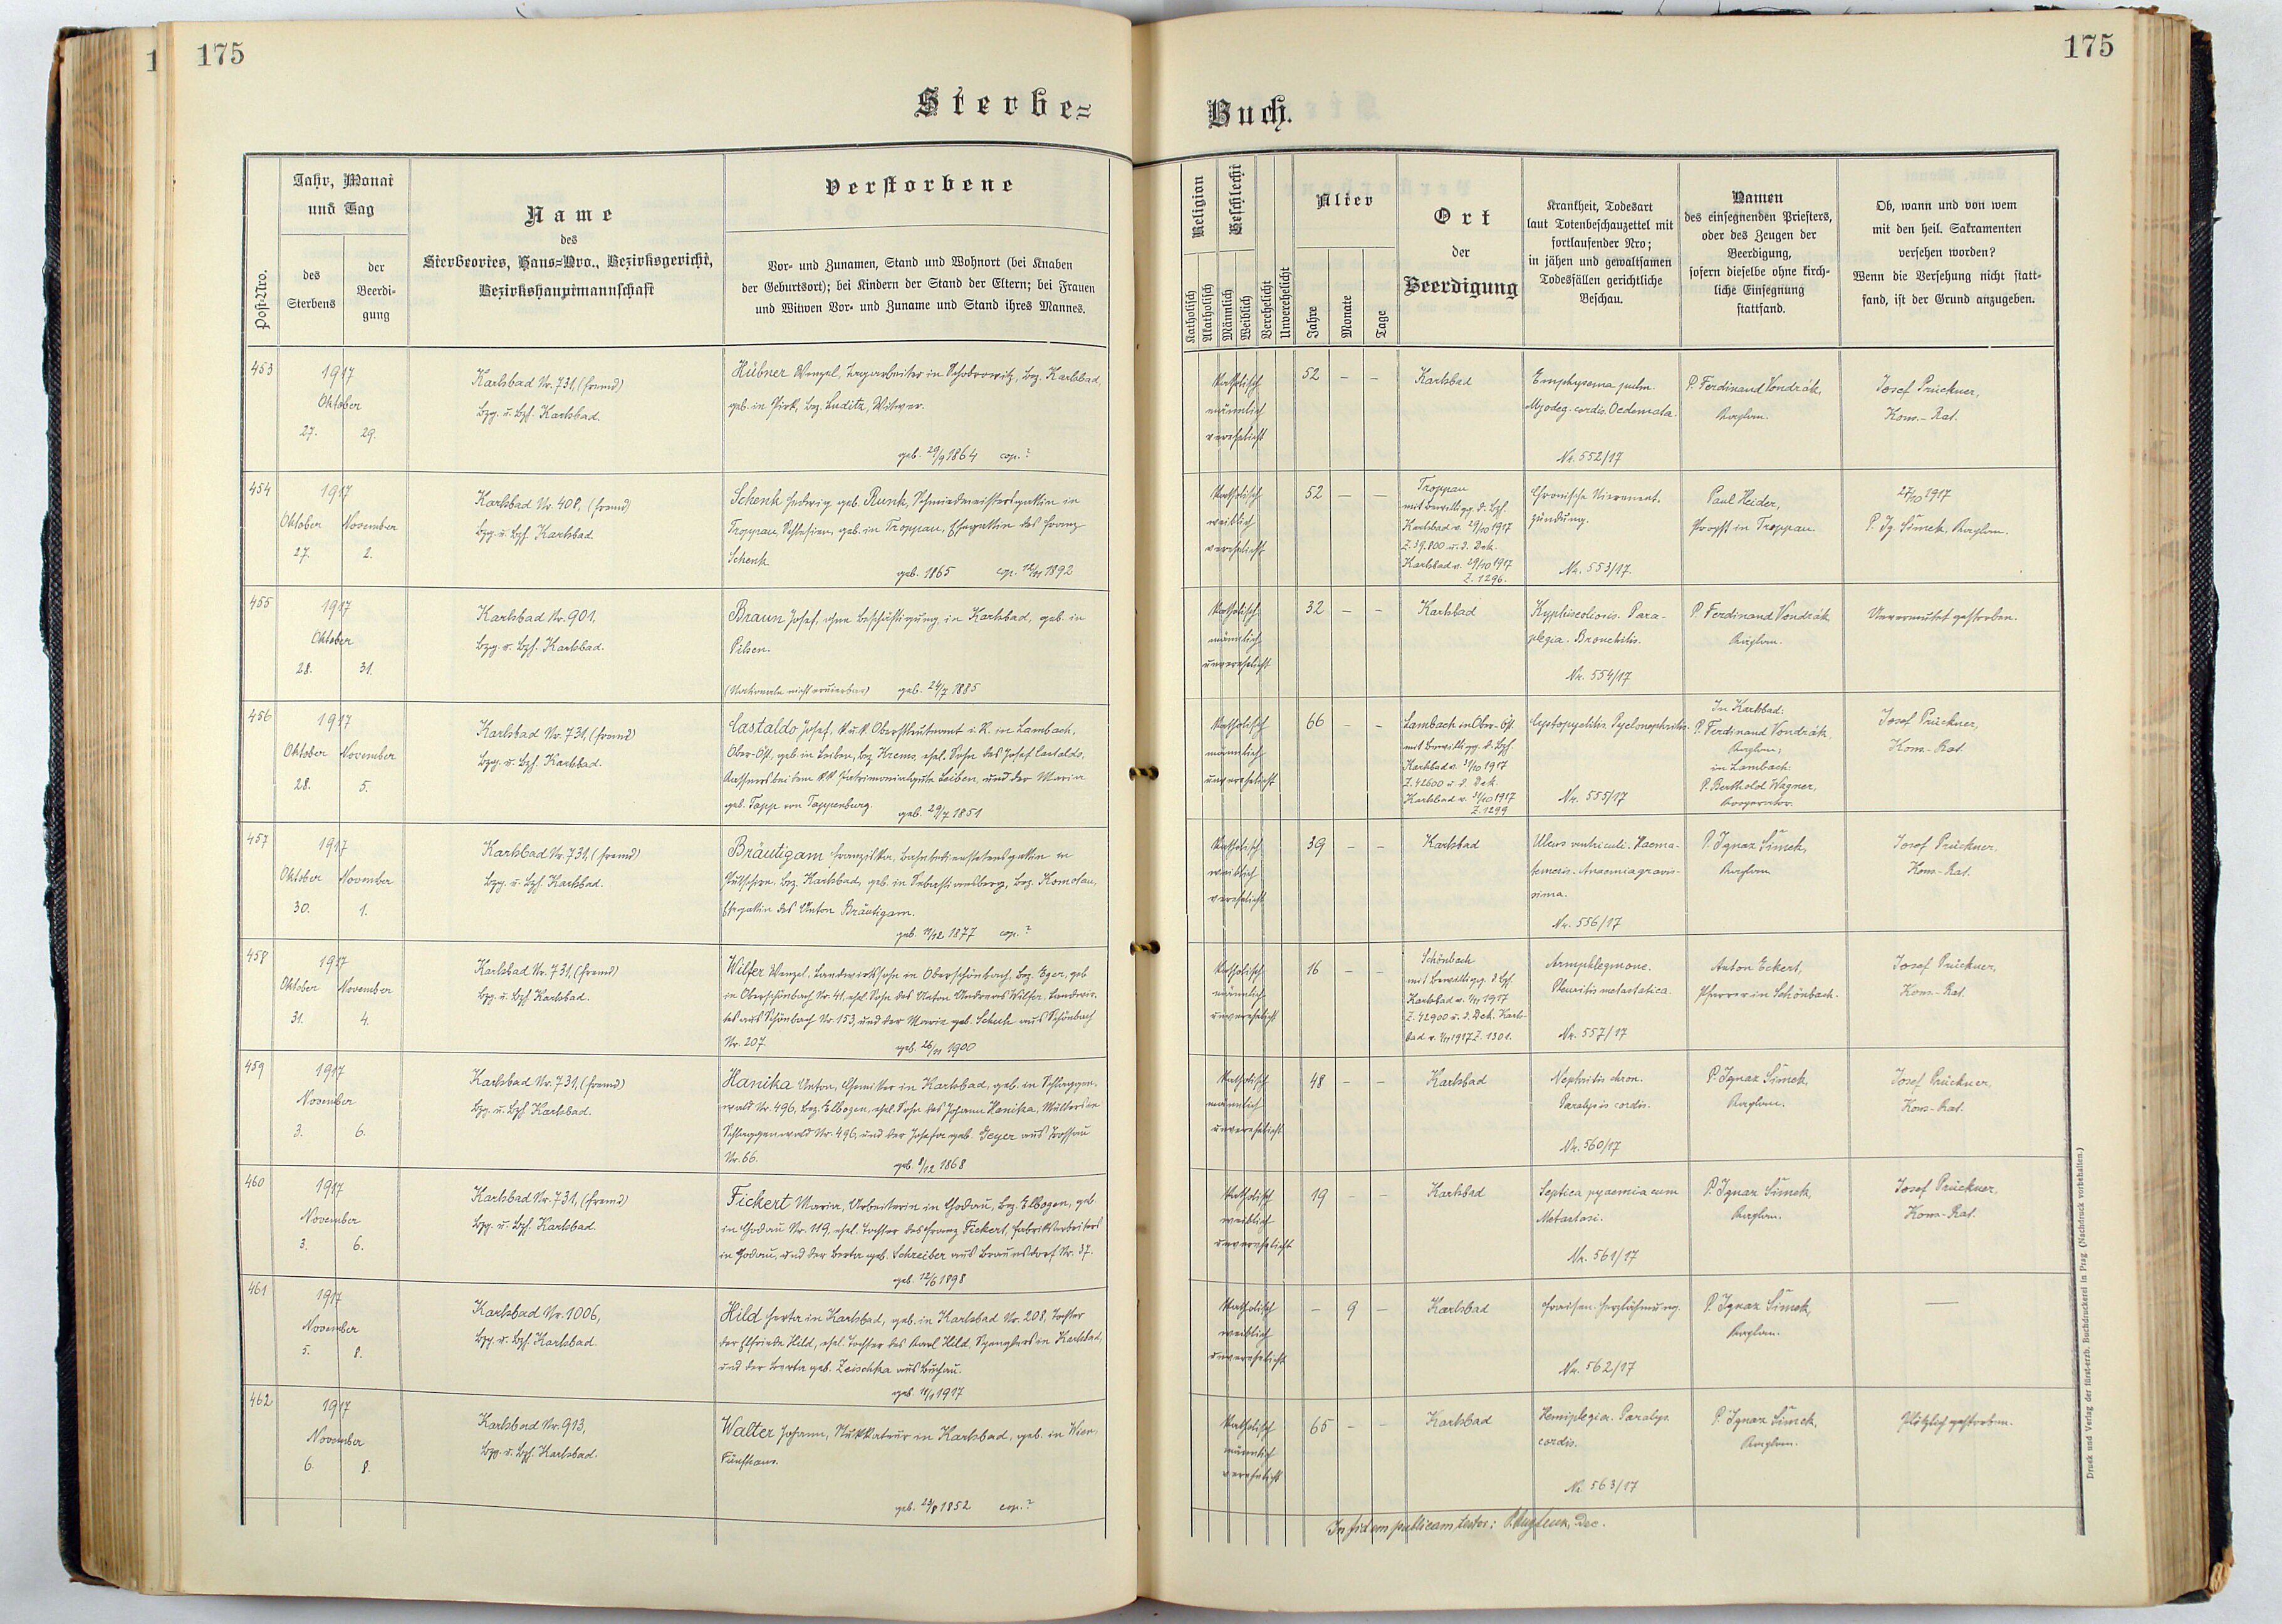 175
175
Sterbe=
Buch.
Post-Nro.
Jahr, Monat
und Tag
des
Sterbens
der
Beerdi-
gung
Name
des
Sterbeortes, Haus=Nro., Bezirksgericht,
Bezirkshauptmannschaft
Verstorbene
Vor- und Zunamen, Stand und Wohnort (bei Knaben
der Geburtsort); bei Kindern der Stand der Eltern; bei Frauen
und Witwen Vor- und Zuname und Stand ihres Mannes.
Religion
Katholisch
Akatholisch
Geschlecht
Männlich
Weiblich
Verehelicht
Unverehelicht
Alter
Jahre
Monate
Tage
Ort
der
Beerdigung
Krankheit, Todesart
laut Totenbeschauzettel mit
fortlaufender Nro;
in jähen und gewaltsamen
Todesfällen gerichtliche
Beschau.
Namen
des einsegnenden Priesters,
oder des Zeugen der
Beerdigung,
sofern dieselbe ohne kirch-
liche Einsegnung
stattfand.
Ob, wann und von wem
mit den heil. Sakramenten
versehen worden?
Wenn die Versehung nicht statt-
fand, ist der Grund anzugeben.
453
1917
Oktober
27. 29.
Karlsbad Nr. 731, (fremd)
Bzg. u. Bzh. Karlsbad.
Hübner Wenzel, Tagarbeiter in Schobrowitz, Bez. Karlsbad,
geb. in Pirk, Bez. Luditz, Witwer.
geb. 29/9 1864 cop.?
katholisch
männlich
verehelicht
52 — —
Karlsbad
Emphysema pulm.
Myodeg. cordis. Oedemata.
Nr. 552/17
P. Ferdinand Vondrák,
Kaplan.
Josef Prückner,
Kons.-Rat.
454
1917
Oktober November
27. 2.
Karlsbad Nr. 408, (fremd)
Bzg. u. Bzh. Karlsbad
Schenk Hedwig geb. Runk, Schmiedmeistersgattin in
Troppau, Schlesien, geb. in Troppau, Ehegattin des Franz
Schenk.
geb. 1865 cop. 12/11 1892
katholisch
weiblich
verehelicht
52 — —
Troppau
mit Bewilligg. d. Bzh.
Karlsbad v. 29/10 1917
Z. 39.800 u. d. Dek.
Karlsbad v. 29/10 1917
Z. 1296.
Chronische Nierenent-
zündung.
Nr. 553/17.
Paul Heider,
Propst in Troppau
27/10 1917
P. Ig. Šimek, Kaplan.
455
1917
Oktober
28. 31.
Karlsbad Nr. 901,
Bzg. u. Bzh. Karlsbad.
Braun Josef, ohne Beschäftigung in Karlsbad, geb. in
Pilsen.
(Nationale nicht eruierbar) geb. 24/7 1885
katholisch
männlich
unverehelicht
32 — —
Karlsbad
Kyphiscoliosis. Para-
plegia. Bronchitis.
Nr. 554/17
P. Ferdinand Vondrák
Kaplan.
Unvermutet gestorben.
456
1917
Oktober November
28. 5.
Karlsbad Nr. 731, (fremd)
Bzg. u. Bzh. Karlsbad.
Castaldo Josef, k. u. k. Oberstleutnant i. R. in Lambach,
Ober-Öst., geb. in Leiben, Bez. Krems, ehel. Sohn des Josef Castaldo,
Kassiers bei dem k.k. Patrimonialgute Leiben, und der Maria
geb. Tapp von Tappenburg. geb. 29/7 1851
katholisch
männlich
unverehelicht
66 — —
Lambach in Ober-Öst.
mit Bewilligg. d. Bzh.
Karlsbad v. 31/10 1917
Z. 42600 u. d. Dek.
Karlsbad v. 31/10 1917
Z. 1299
Cystopyelitis. Pyelonephritis.
Nr. 555/17
In Karlsbad:
P. Ferdinand Vondrák,
Kaplan;
in Lambach:
P. Berthold Wagner,
Kooperator.
Josef Prückner,
Kons.-Rat.
457
1917
Oktober November
30. 1.
Karlsbad Nr. 731, (fremd)
Bzg. u. Bzh. Karlsbad.
Bräutigam Franziska, Bahnbedienstetensgattin in
Putschirn, Bez. Karlsbad, geb. in Sebastiansberg, Bez. Komotau,
Ehegattin des Anton Bräutigam.
geb. 11/12 1877 cop.?
katholisch
weiblich
verehelicht
39 — —
Karlsbad
Ulcus ventriculi. Haema-
temesis. Anaemia gravis-
sima.
Nr. 556/17
P. Ignaz Šimek,
Kaplan.
Josef Prückner,
Kons.-Rat.
458
1917
Oktober November
31. 4.
Karlsbad Nr. 731, (fremd)
Bzg. u. Bzh. Karlsbad.
Wilfer Wenzel, Landwirtssohn in Oberschönbach, Bez. Eger, geb.
in Oberschönbach Nr. 41, ehel. Sohn des Anton Andreas Wilfer, Landwir-
tes aus Schönbach Nr. 153, und der Marie geb. Schuh aus Schönbach
Nr. 207 geb. 26/11 1900
katholisch
männlich
unverehelicht
16 — —
Schönbach
mit Bewilligg. d. Bzh.
Karlsbad v. 1/11 1917
Z. 42900 u. d. Dek. Karls-
bad v. 1/11 1917 Z. 1301.
Armphlegmone.
Pleuritis metastatica.
Nr. 557/17
Anton Eckert,
Pfarrer in Schönbach.
Josef Prückner,
Kons.-Rat.
459
1917
November
3. 6.
Karlsbad Nr. 731, (fremd)
Bzg. u. Bzh. Karlsbad.
Hanika Anton, Chemiker in Karlsbad, geb. in Schlaggen-
wald Nr. 496, Bez. Elbogen, ehel. Sohn des Johann Hanika, Müllers in
Schlaggenwald Nr. 496, und der Josefa geb. Geyer aus Trossau
Nr. 66. geb. 8/12 1868
katholisch
männlich
unverehelicht
48 — —
Karlsbad
Nephritis chron.
Paralysis cordis.
Nr. 560/17
P. Ignaz Šimek,
Kaplan.
Josef Prückner,
Kons.-Rat.
460
1917
November
3. 6.
Karlsbad Nr. 731, (fremd)
Bzg. u. Bzh. Karlsbad.
Fickert Maria, Arbeiterin in Chodau, Bez. Elbogen, geb.
in Chodau Nr. 119, ehel. Tochter des Franz Fickert, Fabriksarbeiters
in Chodau, und der Berta geb. Schreiber aus Braunsdorf Nr. 37.
geb. 12/6 1898
katholisch
weiblich
unverehelicht
19 — —
Karlsbad
Septica pyaemia cum
Metastasi.
Nr. 561/17
P. Ignaz Šimek,
Kaplan.
Josef Prückner,
Kons.-Rat.
461
1917
November
5. 8.
Karlsbad Nr. 1006,
Bzg. u. Bzh. Karlsbad.
Hild Herta in Karlsbad, geb. in Karlsbad Nr. 208, Tochter
der Elfriede Hild, ehel. Tochter des Karl Hild, Spenglers in Karlsbad,
und der Berta geb. Zeischka aus Buchau.
geb. 11/1 1917
katholisch
weiblich
unverehelicht
— 9 —
Karlsbad
Fraisen. Herzlähmung.
Nr. 562/17
P. Ignaz Šimek,
Kaplan.
—
462
1917
November
6. 8.
Karlsbad Nr. 913,
Bzg. u. Bzh. Karlsbad.
Walter Johann, Stukkateur in Karlsbad, geb. in Wien,
Fünfhaus.
geb. 23/8 1852 cop.?
katholisch
männlich
verehelicht
65 — —
Karlsbad
Hemiplegia. Paralys.
cordis.
Nr. 563/17
P. Ignaz Šimek,
Kaplan.
Plötzlich gestorben.
In fidem publicam testor: Dec.
Druck und Verlag der fürst-erzb. Buchdruckerei in Prag (Nachdruck vorbehalten.)